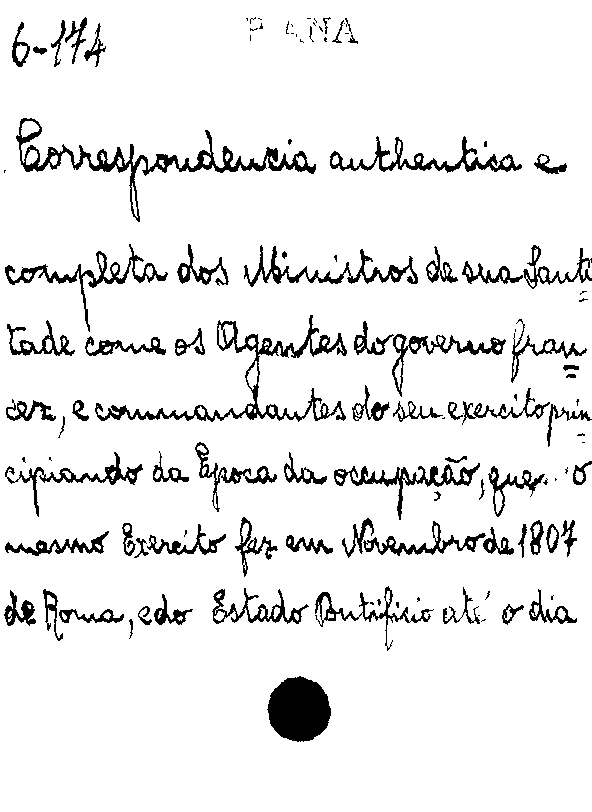 6-174
P ANA
Correspondencia authentica e
completa dos Ministros de sua Santi=
tade come os Agentes do governo fran=
cez, e commandantes do seu exercito prin=
cipiando da Epoca da occupação, que o
mesmo Exercito fez em Novembro de 1807
de Roma, e do Estado Pontificio até o dia